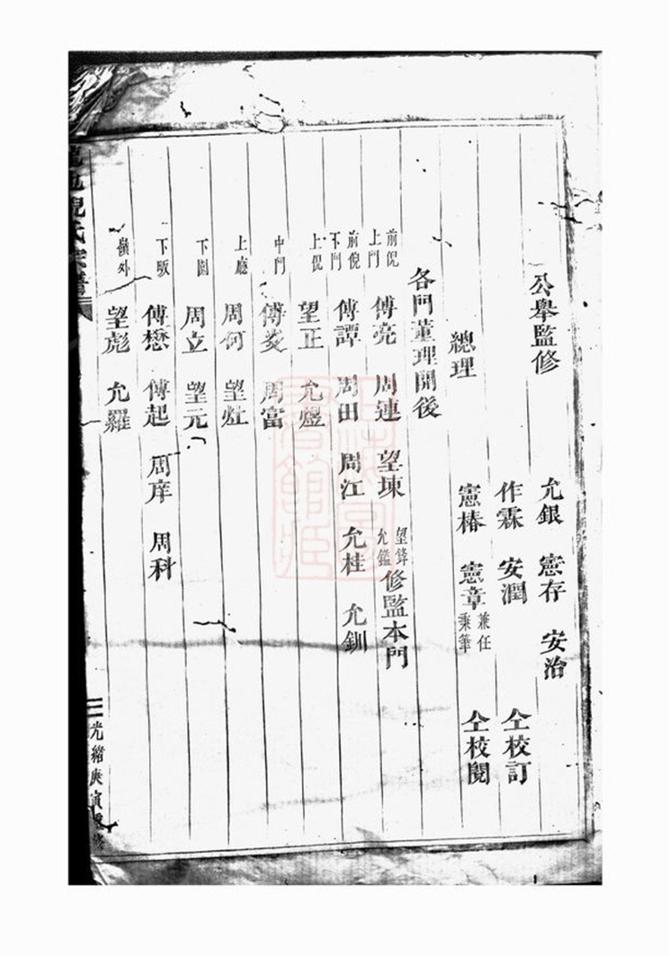 公舉監修
允銀 憲存 安治
作霖 安潤 仝校訂
總理
憲椿 憲章 兼任秉筆 仝校閱
各門董理開後
前倪上門 傅亮 周連 望埬 望鋒 允鑑 修監本門
前倪下門 傅譚 周田 周江 允桂 允釧
上倪 望正 允煜
中門 傅菼 周富
上廳 周何 望灶
下園 周立 望元
下畈 傅懋 傅起 周庠 周科
嶺外 望彪 允羅
倪氏宗譜
光緒庚寅重修